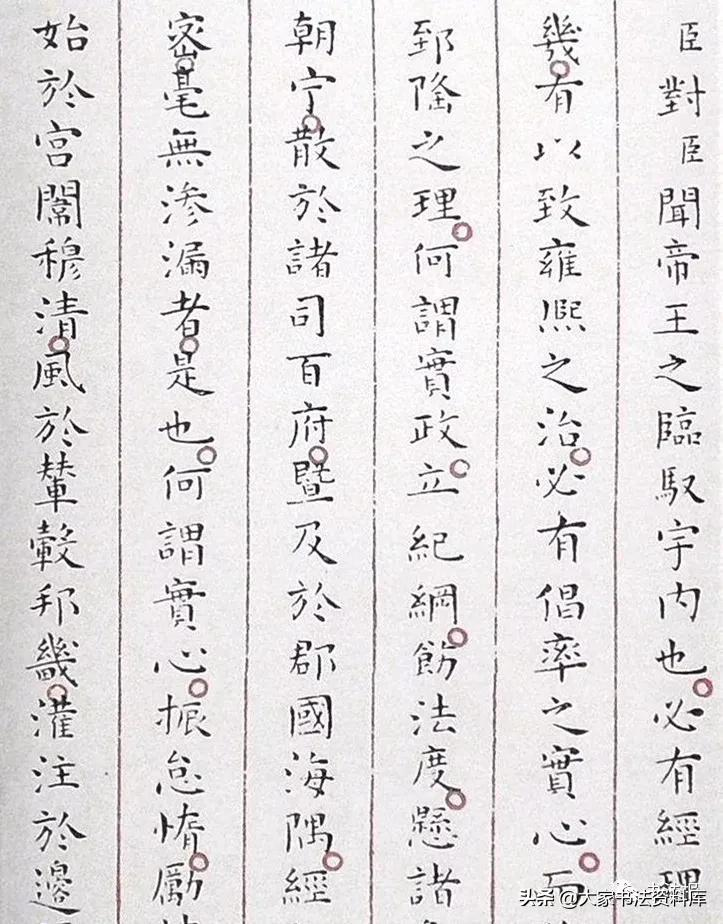 臣對臣聞帝王之臨馭宇内也必有經理
幾有以致雍熙之治必有倡率之實心
郅隆之理何謂實政立紀綱飭法度懸諸
朝宁散於諸司百府暨及於郡國海隅經
宻毫無渗漏者是也何謂實心振怠惰勵
始於宫闈穆清風於輦轂邦畿灌注於邊
头条 @大家书法资料库